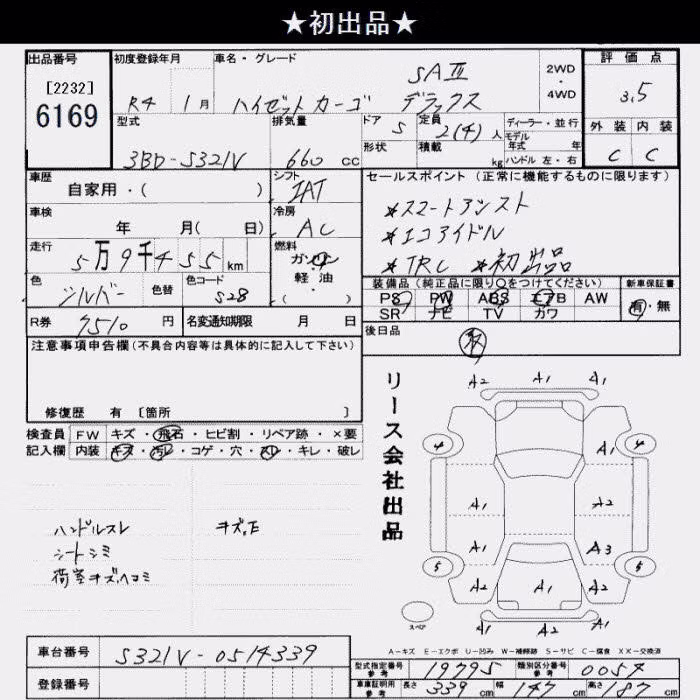 ★初出品★
出品番号 初度登録年月 車名・グレード 評価点
[2232]
6169
R4 1月 ハイゼットカーゴ SAⅢ デラックス 2WD・4WD 3.5
型式 排気量 ドア 5 定員 2(4)人 ディーラー・並行 外装 内装
形状 積載 kg モデル年式 年
3BD-S321V 660 cc ハンドル 左・右 C C
車歴 シフト セールスポイント(正常に機能するものに限ります)
自家用・( ) IAT
車検 冷房 *スマートアシスト
年 月( 日) AC *エコアイドル
走行 燃料 *TRC *初出品
5万9千455km ガソリン・軽油
色 色替 色コード 装備品(純正品に限り○をつけてください) 新車保証書
シルバー S28 PS PW ABS エアB AW 有・無
SR ナビ TV カワ
R券 7510円 名変通知期限 月 日 後日品
注意事項申告欄(不具合内容等は具体的に記入して下さい)
修復歴 有 [箇所 ]
検査員 FW キズ・飛石・ヒビ割・リペア跡・×要
記入欄 内装 キズ・汚レ・コゲ・穴・スレ・キレ・破レ
リース会社出品
A2 A1 A1
4 A1 4
A1 A2
A1 A3
5 A2 A1 A2 5
スペア
ハンドルスレ キズ.E
シートシミ
荷室キズ.ヘコミ
A-キズ E-エクボ U-凹み W-補修跡 S-サビ C-腐食 XX-交換済
車台番号 S321V-0514339
登録番号
型式指定番号 参考 19795 類別区分番号 参考 0054
車庫証明用 参考 長さ 339 cm 幅 147 cm 高さ 187 cm